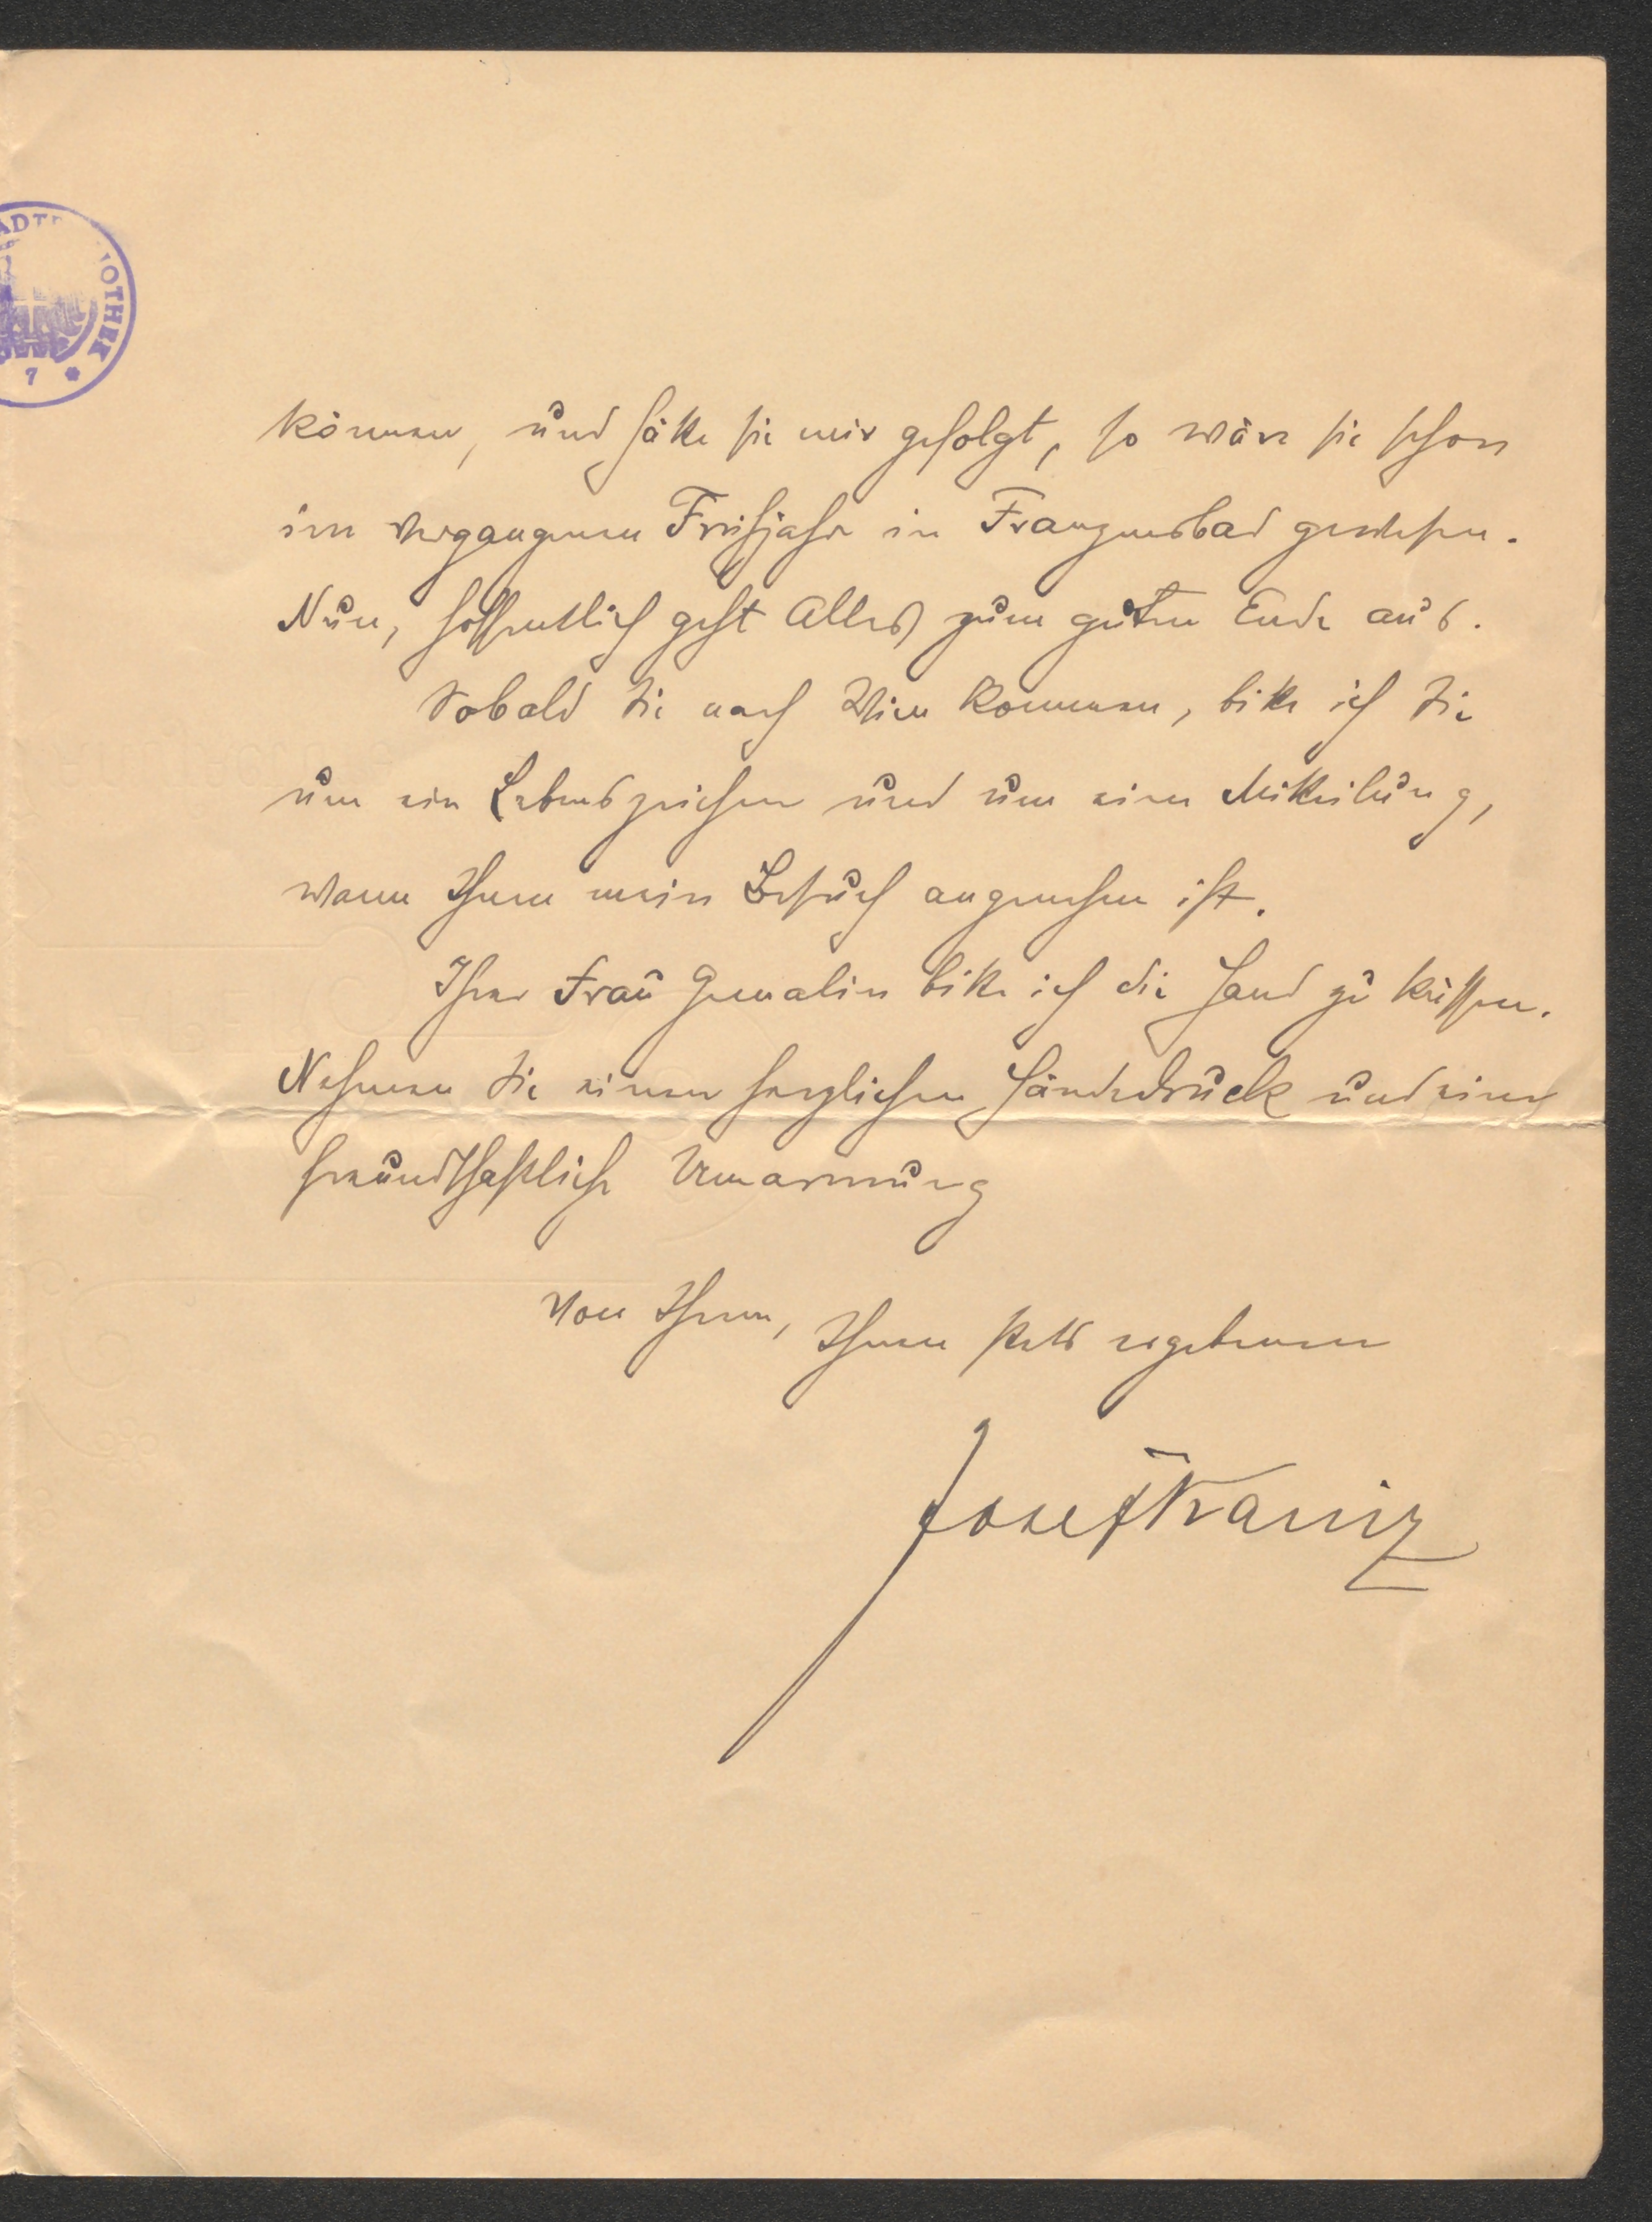 ADTB
OTHEK
7 *
können, und hätte sie mir gefolgt, so wäre sie schon
im vergangenen Frühjahr in Franzensbad gewesen.
Nun, hoffentlich geht Alles zum guten Ende aus.
Sobald Sie nach Wien kommen, bitte ich Sie
um ein Lebenszeichen und um eine Mitteilung,
wann Ihnen mein Besuch angenehm ist.
Ihrer Frau Gemalin bitte ich die Hand zu küssen.
Nehmen Sie einen herzlichen Händedruck und eine
freundschaftliche Umarmung
von Ihrem, Ihnen stets ergebenen
Josef Kainz